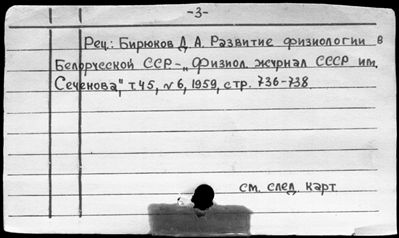 -3-
Рец.: Бирюков Д. А. Развитие физиологии в
Белорусской ССР.-„Физиол. журнал СССР им.
Сеченова", т.45, №6, 1959, стр. 736-738.
см. след. карт.